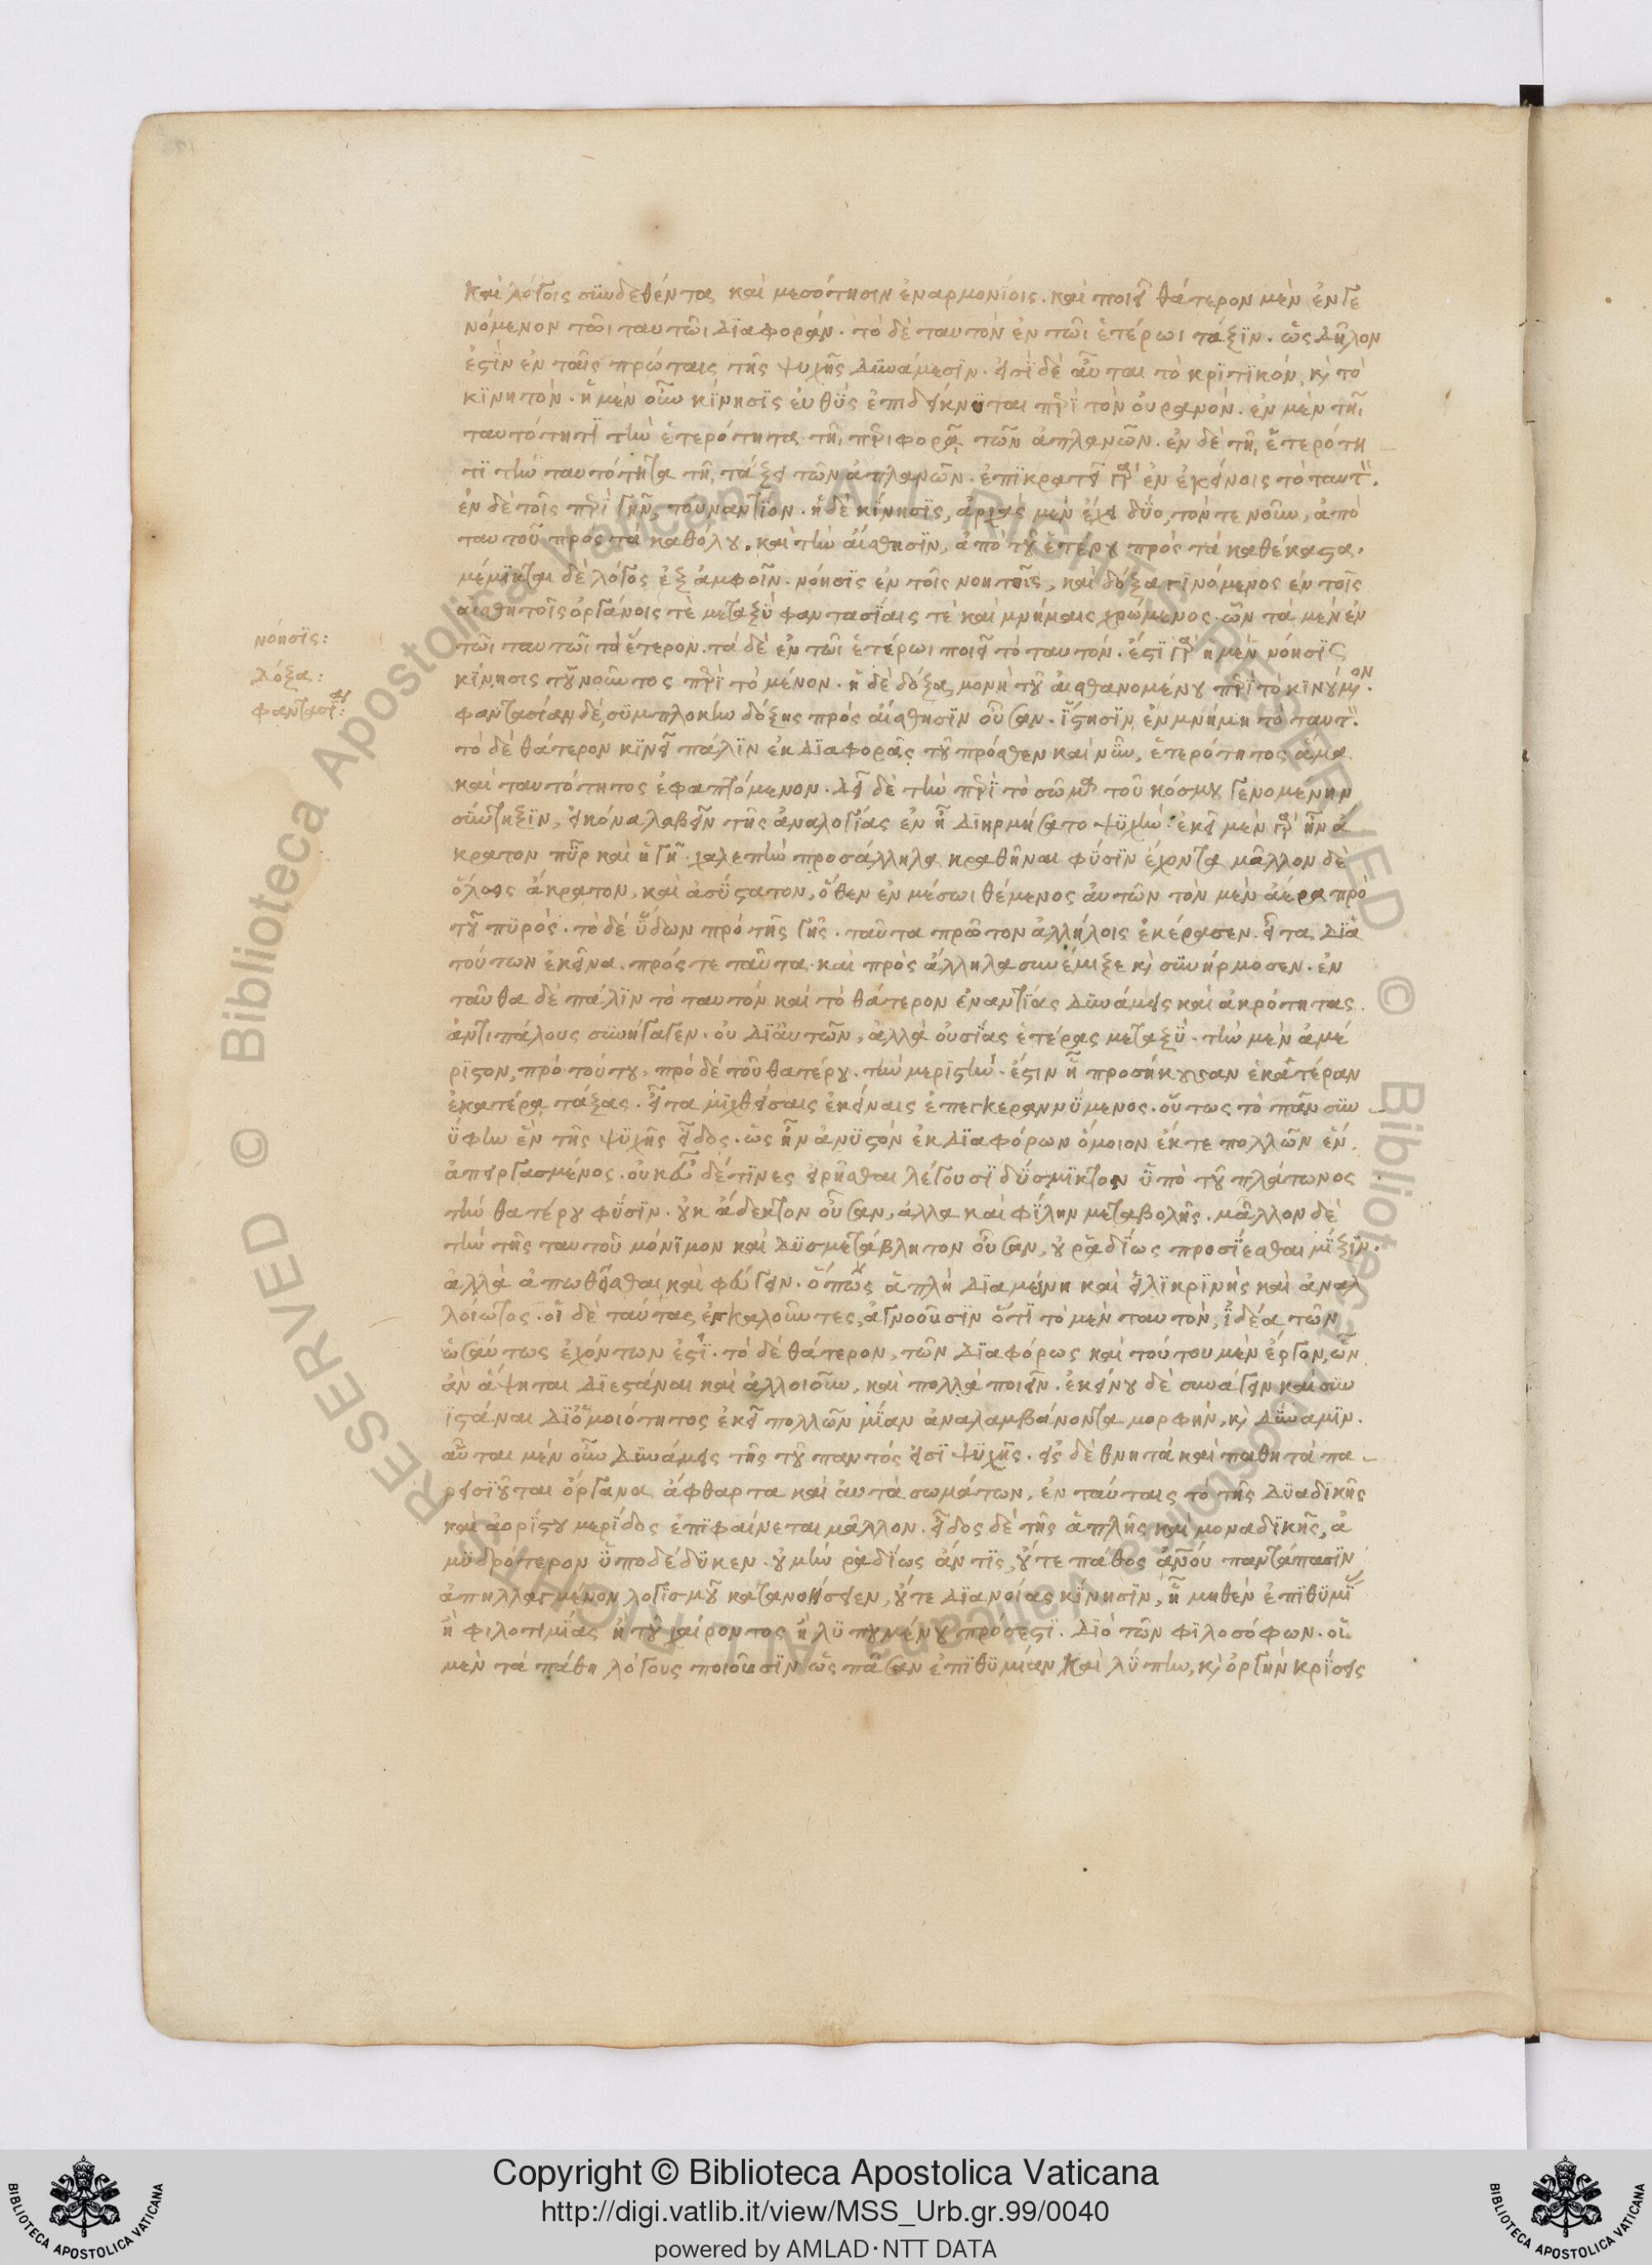 καὶ λόγοις συνδεθέντας καὶ μεσότησιν ἐναρμονίοις. καὶ ποιεῖ θάτερον μὲν ἐγγε
νόμενον τῶι ταυτῶι διαφοράν. τὸ δὲ ταυτὸν ἐν τῶι ἑτέρωι τάξϊν. ὡς δῆλον
ἐστϊν ἐν ταῖς πρώταις τῆς ψυχῆς δυνάμεσϊν. εἰσὶ δὲ αὗται τὸ κρϊτϊκόν, κ̀ τὸ
κϊνητόν. ἡ μὲν οὖν κίνησϊς εὐθὺς ἐπιδείκνϋται περὶ τὸν οὐρανόν. ἐν μὲν τῆι
ταυτότητϊ τὴν ἑτερότητα τῆι περιφορᾶι τῶν ἀπλανῶν. ἐν δὲ τῆι ἑτερότη
τϊ τὴν ταυτότητα τῆι τάξει τῶν ἀπλανῶν. ἐπϊκρατεῖ γὰρ ἐν ἐκείνοις τὸ ταυτὸν.
ἐν δὲ τοῖς περὶ γῆν, τοὐναντίον. ἡ δὲ κίνησϊς, ἀρχὰς μὲν ἔχει δύο, τόν τε νοῦν, ἀπὸ
ταυτοῦ πρὸς τὰ καθόλου. καὶ τὴν αἴσθησϊν, ἀπὸ τοῦ ἑτέρου πρὸς τὰ καθέκαστα.
μέμϊκται δὲ λόγος ἐξ ἀμφοῖν. νόησϊς ἐν τοῖς νοητοῖς, καὶ δόξα γϊνόμενος ἐν τοῖς
αἰσθητοῖς ὀργάνοις τὲ μεταξὺ φαντασίαις τὲ καὶ μνήμαις χρώμενος. ὧν τὰ μὲν ἐν
τῶι ταυτῶι τὸ ἕτερον. τὰ δὲ ἐν τῶι ἑτέρωι ποιεῖ τὸ ταυτόν. ἔστϊ γὰρ ἡ μὲν νόησϊς
νόησϊς:
κίνησις τοῦ νοοῦντος περὶ τὸ μένον. ἡ δὲ δόξα, μονὴ τοῦ αἰσθανομένου περὶ τὸ κϊνούμενον.
δόξα:
φαντασίαν δὲ, συμπλοκὴν δόξης πρὸς αἴσθησϊν οὖσαν. ἵστησϊν ἐν μνήμη τὸ ταυτὸν.
φαντασίαν:
τὸ δὲ θάτερον κϊνεῖ πάλϊν ἐκ διαφορᾶς τοῦ πρόσθεν καὶ νῦν, ἑτερότητος ἅμα
καὶ ταυτότητος ἐφαπτόμενον. δεῖ δὲ τὴν περὶ τὸ σῶμα τοῦ κόσμου γενομένην
σύντηξϊν, εἰκόνα λαβεῖν τῆς ἀναλογίας ἐν ἧ διηρμήσατο ψυχὴν. ἐκεῖ μὲν γὰρ ἦν ἄ
κρατον πῦρ καὶ ἡ γῆ. χαλεπὴν προσάλληλα κραθῆναι φύσϊν ἔχοντα μᾶλλον δὲ
ὅλως ἄκρατον, καὶ ἀσύστατον, ὅθεν ἐν μέσωι θέμενος αὐτῶν τὸν μὲν ἀέρα πρὸ
τοῦ πυρός. τὸ δὲ ὕδων πρὸ τῆς γῆς. ταῦτα πρῶτον ἀλλήλοις ἐκέρασεν. εἶτα διὰ
τούτων ἐκεῖνα. πρός τε ταῦτα. καὶ πρὸς ἄλληλα συνέμιξε κ̀ συνήρμοσεν. ἐν
ταῦθα δὲ πάλϊν τὸ ταυτόν καὶ τὸ θάτερον ἐναντίας δυνάμεις καὶ ἀκρότητας
ἀντιπάλους συνήγαγεν. οὐ διαὐτῶν, ἀλλὰ οὐσίας ἑτέρας μεταξύ. τὴν μὲν ἀμέ
ριστον, πρὸ τούτου, πρὸ δὲ τοῦ θατέρου. τὴν μεριστὴν. ἔστιν ἧ προσήκουσαν ἑκατέραν
ἑκατέρα τάξας. εἶτα μιχθείσαις ἐκείναις ἐπεγκεραννύμενος. οὕτως τὸ πᾶν συν
ύφην ἓν τῆς ψυχῆς εἶδος. ὡς ἦν ἀνυστόν ἐκ διαφόρων ὅμοιον ἔκ τε πολλῶν ἓν.
ἀπειργασμένος. οὐκεῦ δέ τϊνες εἰρῆσθαι λέγουσϊ δύσμϊκτον ὑπὸ τοῦ πλάτωνος
τὴν θατέρου φύσϊν. οὐκ ἄδεκτον οὖσαν, ἀλλα καὶ φίλην μεταβολῆς. μᾶλλον δὲ
τὴν τῆς ταυτοῦ μόνϊμον καὶ δυσμετάβλητον οὖσαν, οὐ ῥαδίως προσίεσθαι μῖξϊν.
ἀλλὰ ἀπωθεῖσθαι καὶ φεύγειν. ὅπως ἁπλῆ διαμείνη καὶ εἰλϊκρϊνὴς καὶ ἀναλ
λοίωτος. οἱ δὲ ταῦτας ἐγκαλοῦντες, ἀγνοοῦσϊν ὅτϊ τὸ μὲν ταυτὸν, ἰδέα τῶν
ὡσαύτως ἐχόντων ἐστϊ. τὸ δὲ θάτερον, τῶν διαφόρως καὶ τούτου μὲν ἔργον, ὧν
ἂν ἅψηται διεστάναι καὶ ἀλλοιοῦν, καὶ πολλὰ ποιεῖν. ἐκείνου δὲ συνάγειν καὶ συν
ϊστάναι διὁμοιότητος ἐκεῖ πολλῶν μίαν ἀναλαμβάνοντα μορφὴν, κ̀ δύναμϊν.
αὗται μὲν οὖν δυνάμεις τῆς τοῦ παντός εἰσϊ ψυχῆς. εἰς δὲ θνητὰ καὶ παθητὰ πα
ρεισϊοῦται ὄργανα ἄφθαρτα καὶ αὐτὰ σωμάτων, ἐν ταύταις τὸ τῆς δυαδϊκῆς
καὶ ἀορίστου μερίδος ἐπϊφαίνεται μᾶλλον. εἶδος δὲ τῆς ἁπλῆς καὶ μοναδϊκῆς, ἀ
μυδρότερον ὑποδέδυκεν. οὐ μὴν ῥαδίως ἄν τϊς, οὔτε πάθος ἀνοῦ παντάπασϊν
ἀπηλλαγμένον λογϊσμοῦ κατανοήσειεν, οὔτε διανοίας κίνησϊν, ἧ μηθὲν ἐπϊθυμϊ
ἢ φιλοτιμίας ἢ τοῦ χαίροντος ἢ λυπουμένου πρόσεστϊ. διὸ τῶν φϊλοσόφων. οἱ
μὲν τὰ πάθη λόγους ποιοῦσϊν ὡς πᾶσαν ἐπϊθυμίαν καὶ λύπην, κ̀ ὀργὴν κρίσεις
Copyright © Biblioteca Apostolica Vaticana
http://digi.vatlib.it/view/MSS_Urb.gr.99/0040
powered by AMLAD·NTT DATA
BIBLIOTECA APOSTOLICA VATICANA
BIBLIOTECA APOSTOLICA VATICANA
© Biblioteca Apostolica Vaticana ALL RIGHTS RESERVED
© Biblioteca Apostolica Vaticana ALL RIGHTS RESERVED